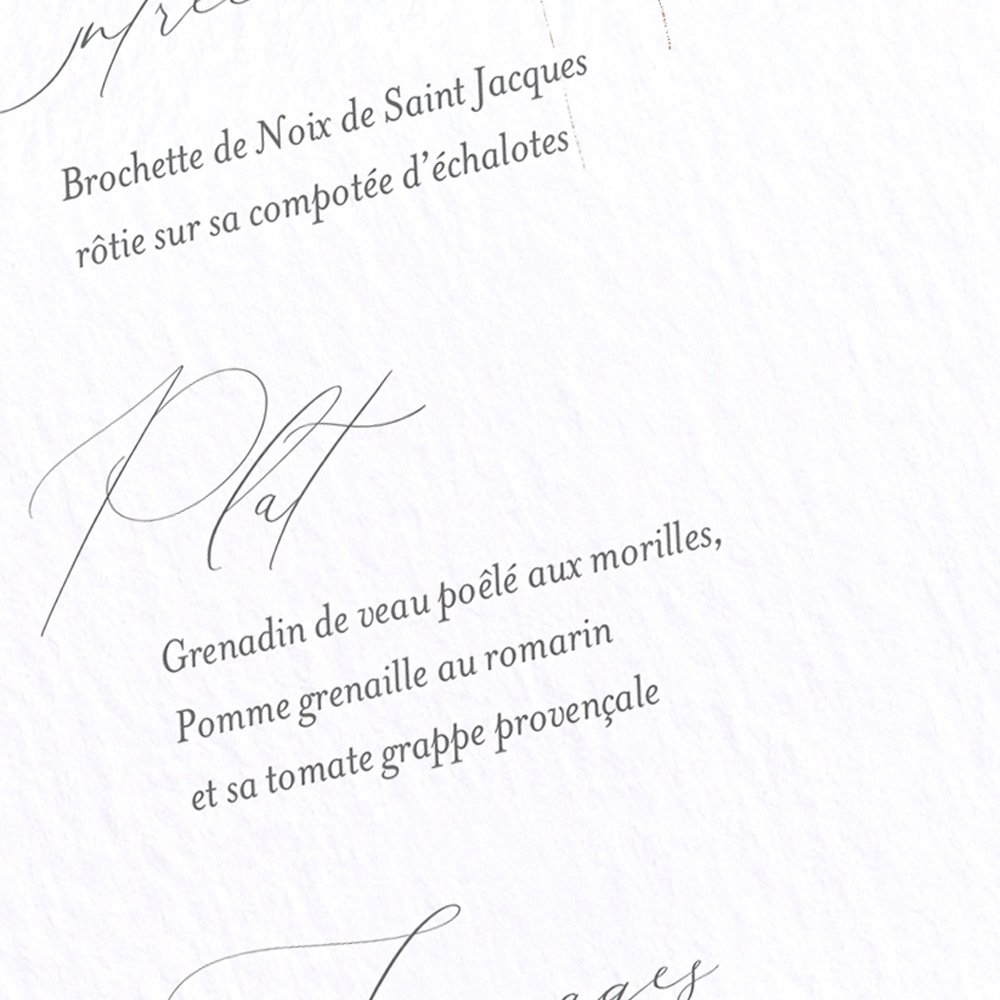 Brochette de Noix de Saint Jacques
rôtie sur sa compotée d’échalotes
Plat
Grenadin de veau poêlé aux morilles,
Pomme grenaille au romarin
et sa tomate grappe provençale